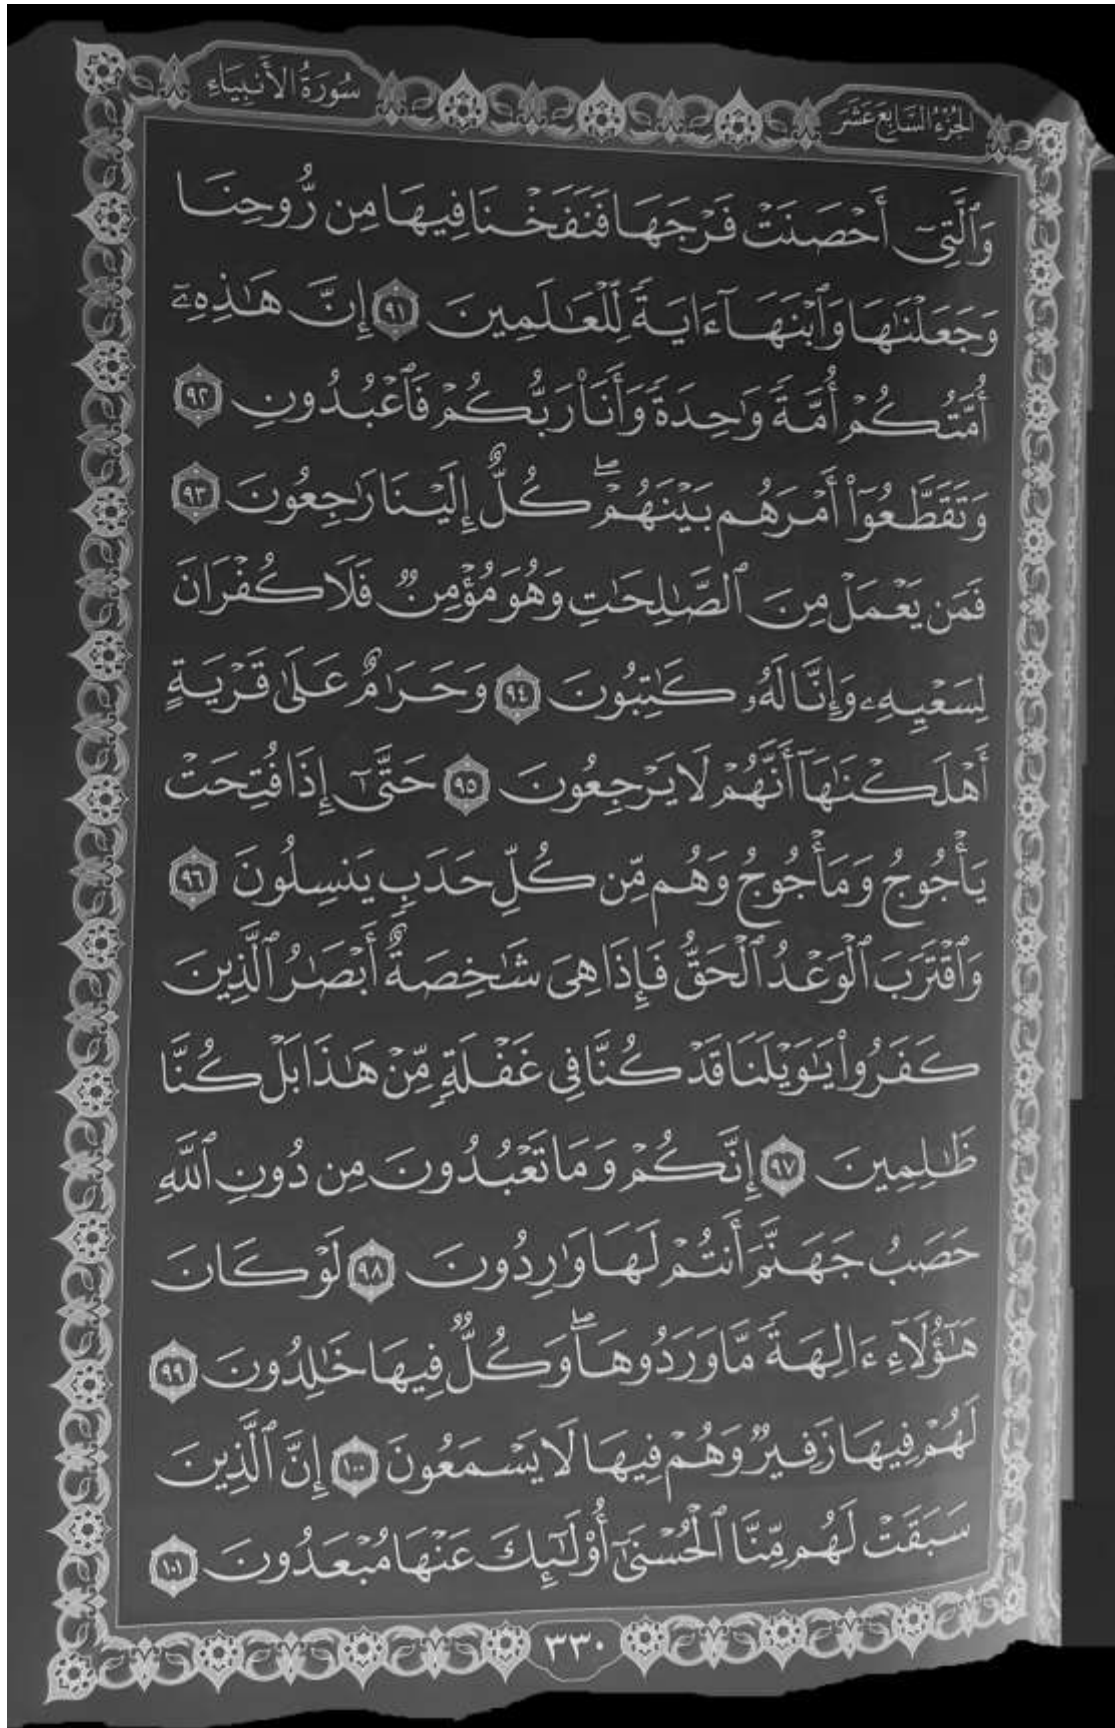 الجُزْءُ السَّابِعَ عَشَرَ
سُورَةُ الأَنبِيَاءِ
وَٱلَّتِيٓ أَحۡصَنَتۡ فَرۡجَهَا فَنَفَخۡنَا فِيهَا مِن رُّوحِنَا
وَجَعَلۡنَٰهَا وَٱبۡنَهَآ ءَايَةٗ لِّلۡعَٰلَمِينَ ٩١ إِنَّ هَٰذِهِۦٓ
أُمَّتُكُمۡ أُمَّةٗ وَٰحِدَةٗ وَأَنَا۠ رَبُّكُمۡ فَٱعۡبُدُونِ ٩٢
وَتَقَطَّعُوٓاْ أَمۡرَهُم بَيۡنَهُمۡۖ كُلٌّ إِلَيۡنَا رَٰجِعُونَ ٩٣
فَمَن يَعۡمَلۡ مِنَ ٱلصَّٰلِحَٰتِ وَهُوَ مُؤۡمِنٞ فَلَا كُفۡرَانَ
لِسَعۡيِهِۦ وَإِنَّا لَهُۥ كَٰتِبُونَ ٩٤ وَحَرَٰمٌ عَلَىٰ قَرۡيَةٍ
أَهۡلَكۡنَٰهَآ أَنَّهُمۡ لَا يَرۡجِعُونَ ٩٥ حَتَّىٰٓ إِذَا فُتِحَتۡ
يَأۡجُوجُ وَمَأۡجُوجُ وَهُم مِّن كُلِّ حَدَبٖ يَنسِلُونَ ٩٦
وَٱقۡتَرَبَ ٱلۡوَعۡدُ ٱلۡحَقُّ فَإِذَا هِيَ شَٰخِصَةٌ أَبۡصَٰرُ ٱلَّذِينَ
كَفَرُواْ يَٰوَيۡلَنَا قَدۡ كُنَّا فِي غَفۡلَةٖ مِّنۡ هَٰذَا بَلۡ كُنَّا
ظَٰلِمِينَ ٩٧ إِنَّكُمۡ وَمَا تَعۡبُدُونَ مِن دُونِ ٱللَّهِ
حَصَبُ جَهَنَّمَ أَنتُمۡ لَهَا وَٰرِدُونَ ٩٨ لَوۡ كَانَ
هَٰٓؤُلَآءِ ءَالِهَةٗ مَّا وَرَدُوهَاۖ وَكُلّٞ فِيهَا خَٰلِدُونَ ٩٩
لَهُمۡ فِيهَا زَفِيرٞ وَهُمۡ فِيهَا لَا يَسۡمَعُونَ ١٠٠ إِنَّ ٱلَّذِينَ
سَبَقَتۡ لَهُم مِّنَّا ٱلۡحُسۡنَىٰٓ أُوْلَٰٓئِكَ عَنۡهَا مُبۡعَدُونَ ١٠١
٣٣٠